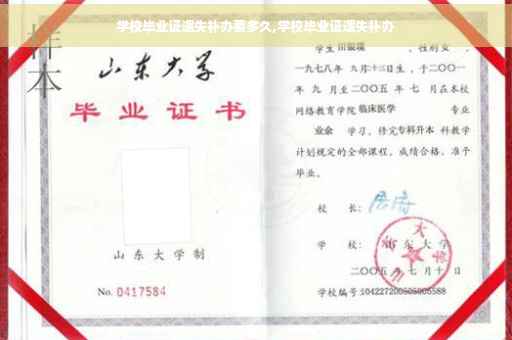 学校毕业证遗失补办要多久,学校毕业证遗失补办
样本
山东大学
毕业证书
山东大学制
No. 0417584
学生 田银瑞 ,性别女 ,
一九七八年 九月十三日生,于二〇〇一
年 九 月至二〇〇五 年 七 月在本校
网络教育学院 临床医学 专业
业余 学习,修完专科升本 科教学
计划规定的全部课程,成绩合格,准予
毕业。
校 长:
学 校: 山东大学
二〇〇五 年 七 月 十 日
学校编号:104227200505005588